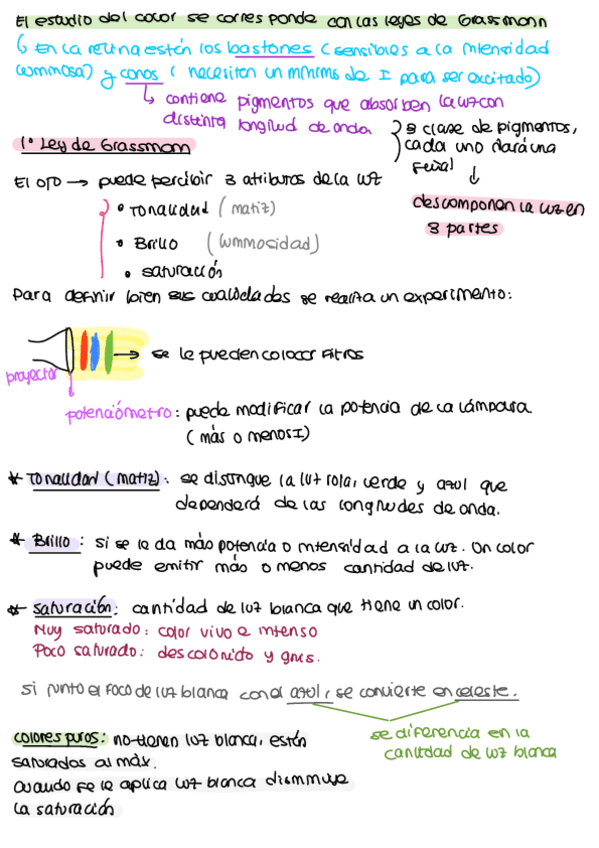 El estudio del color se corresponde con las leyes de Grassmann
↳ En la retina están los bastones (sensibles a la intensidad
luminosa) y conos (necesitan un mínimo de I para ser excitado)
↳ contiene pigmentos que absorben la luz con
distinta longitud de onda.
3 clase de pigmentos,
cada uno dará una
señal
↓
descomponen la luz en
3 partes
1ª Ley de Grassman
El ojo → puede percibir 3 atributos de la luz
• Tonalidad (matiz)
• Brillo (luminosidad)
• saturación
Para definir bien sus cualidades se realiza un experimento:
→ se le pueden colocar filtros
proyector
potenciómetro: puede modificar la potencia de la lámpara
(más o menos I)
* Tonalidad (matiz): se distingue la luz roja, verde y azul que
dependerá de las longitudes de onda.
* Brillo: si se le da más potencia o intensidad a la luz. Un color
puede emitir más o menos cantidad de luz.
* saturación: cantidad de luz blanca que tiene un color.
Muy saturado: color vivo e intenso
Poco saturado: descolorido y gris.
si junto el foco de luz blanca con el azul, se convierte en celeste.
se diferencia en la
cantidad de luz blanca
colores puros: no tienen luz blanca, están
saturados al máx.
cuando se le aplica luz blanca disminuye
la saturación